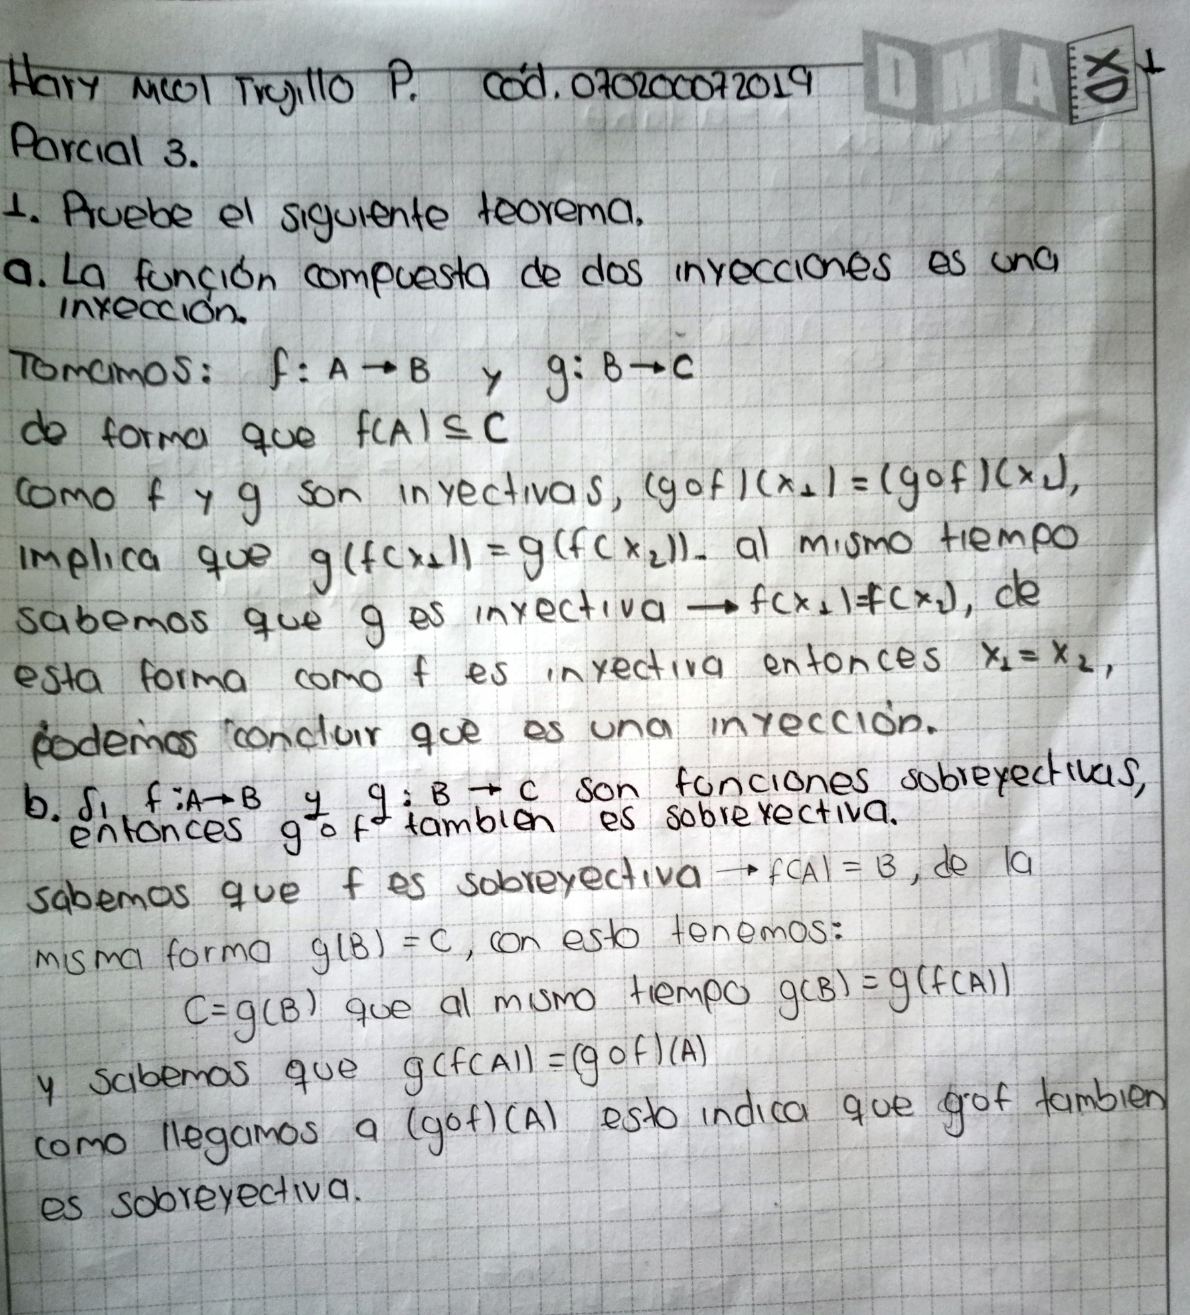 Hary Nicol Trujillo P. Cód. 070200072019
DMA XD 1
Parcial 3.
1. Pruebe el siguiente teorema.
a. La función compuesta de dos inyecciones es una
inyección.
Tomamos: f: A → B y g: B → C
de forma que f(A) ⊆ C
como f y g son inyectivas, (gof)(x₁) = (gof)(x₂),
implica que g(f(x₁)) = g(f(x₂)). al mismo tiempo
sabemos que g es inyectiva → f(x₁)=f(x₂), de
esta forma como f es inyectiva entonces x₁ = x₂,
podemos concluir que es una inyección.
b. Si f: A→B y g: B → C son funciones sobreyectivas,
entonces g o f tambien es sobreyectiva.
sabemos que f es sobreyectiva → f(A) = B, de la
misma forma g(B) = C, con esto tenemos:
C=g(B) que al mismo tiempo g(B) = g(f(A))
y sabemos que g(f(A)) = (gof)(A)
como llegamos a (gof)(A) esto indica que gof tambien
es sobreyectiva.